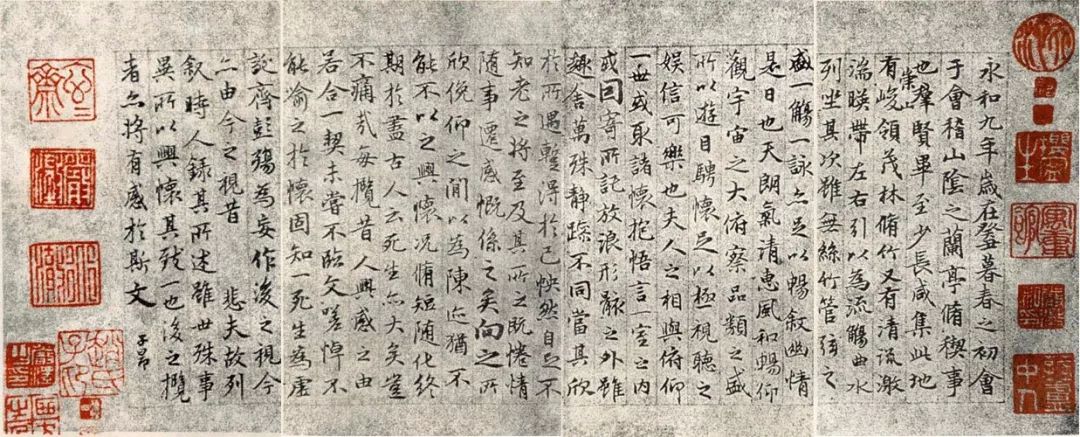 永和九年歲在癸丑暮春之初會
于會稽山陰之蘭亭脩稧事
也羣賢畢至少長咸集此地
有崇山峻領茂林脩竹又有清流激
湍暎帶左右引以為流觴曲水
列坐其次雖無絲竹管弦之
盛一觴一詠亦足以暢敘幽情
是日也天朗氣清惠風和暢仰
觀宇宙之大俯察品類之盛
所以遊目騁懷足以極視聽之
娛信可樂也夫人之相與俯仰
一世或取諸懷抱悟言一室之内
或因寄所託放浪形骸之外雖
趣舍萬殊静躁不同當其欣
於所遇蹔得於己怏然自足不
知老之將至及其所之既惓情
隨事遷感慨係之矣向之所
欣俛仰之間以為陳迹猶不
能不以之興懷況脩短隨化終
期於盡古人云死生亦大矣豈
不痛哉每攬昔人興感之由
若合一契未嘗不臨文嗟悼不
能喻之於懷固知一死生為虛
誕齊彭殤為妄作後之視今
亦由今之視昔 悲夫故列
叙時人錄其所述雖世殊事
異所以興懷其致一也後之攬
者亦將有感於斯文
子昂
趙氏子昂